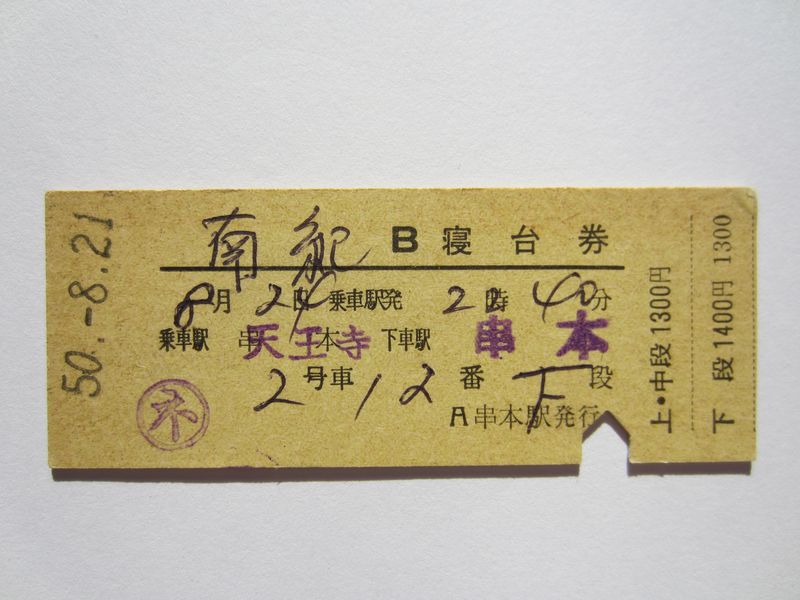 50.-8.21
南紀 B寝台券
8月24日 乗車駅発 22時40分
乗車駅 天王寺 下車駅 串本
2号車 12番 下段
A 串本駅発行
上・中段 1300円
下段 1400円 1300